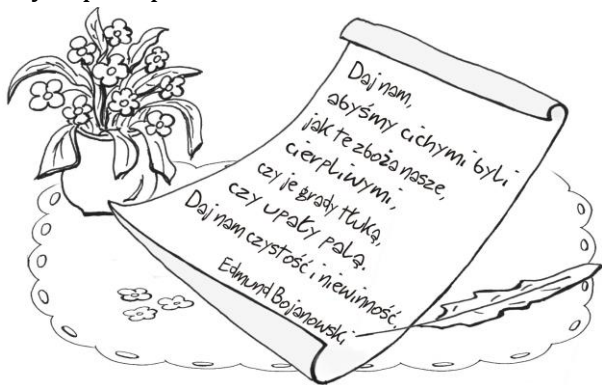 Daj nam,
abyśmy cichymi byli
jak te zboża nasze,
cierpliwymi,
czy je grady tłuką,
czy upały palą.
Daj nam czystość i niewinność.
Edmund Bojanowski